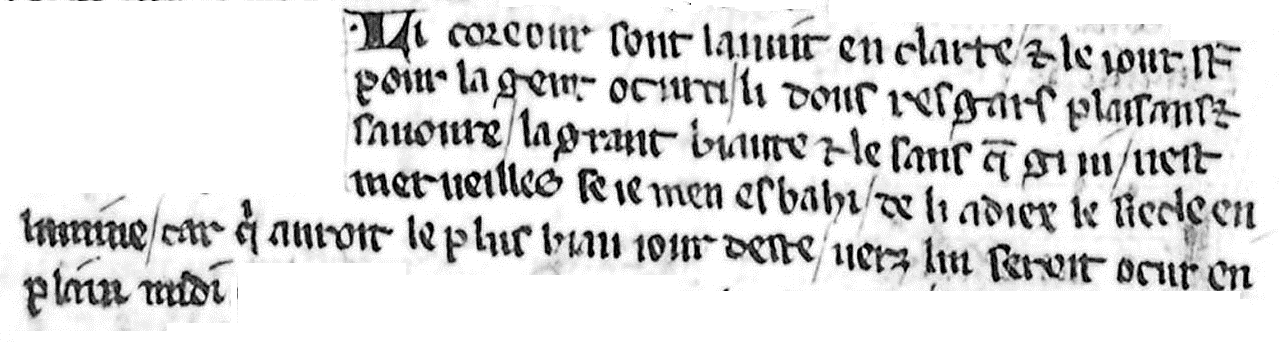 Li corcour sont lanuit en clarte/ ⁊ le iour st̄
pour la gent ocurci/li dous resgars plaisans ⁊
sauoure/lagrant biaute ⁊ le sans q̄ gi ui/nest
merueilles se ie men esbahi/de li adiex le siecle en
lumine/car qⁱ auroit le plus biau iour deste/uerz lui seroit ocur en
plain midi